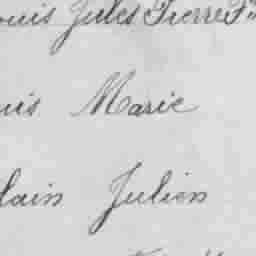 ouis Jules Pierre F
uis Marie
lain Julien